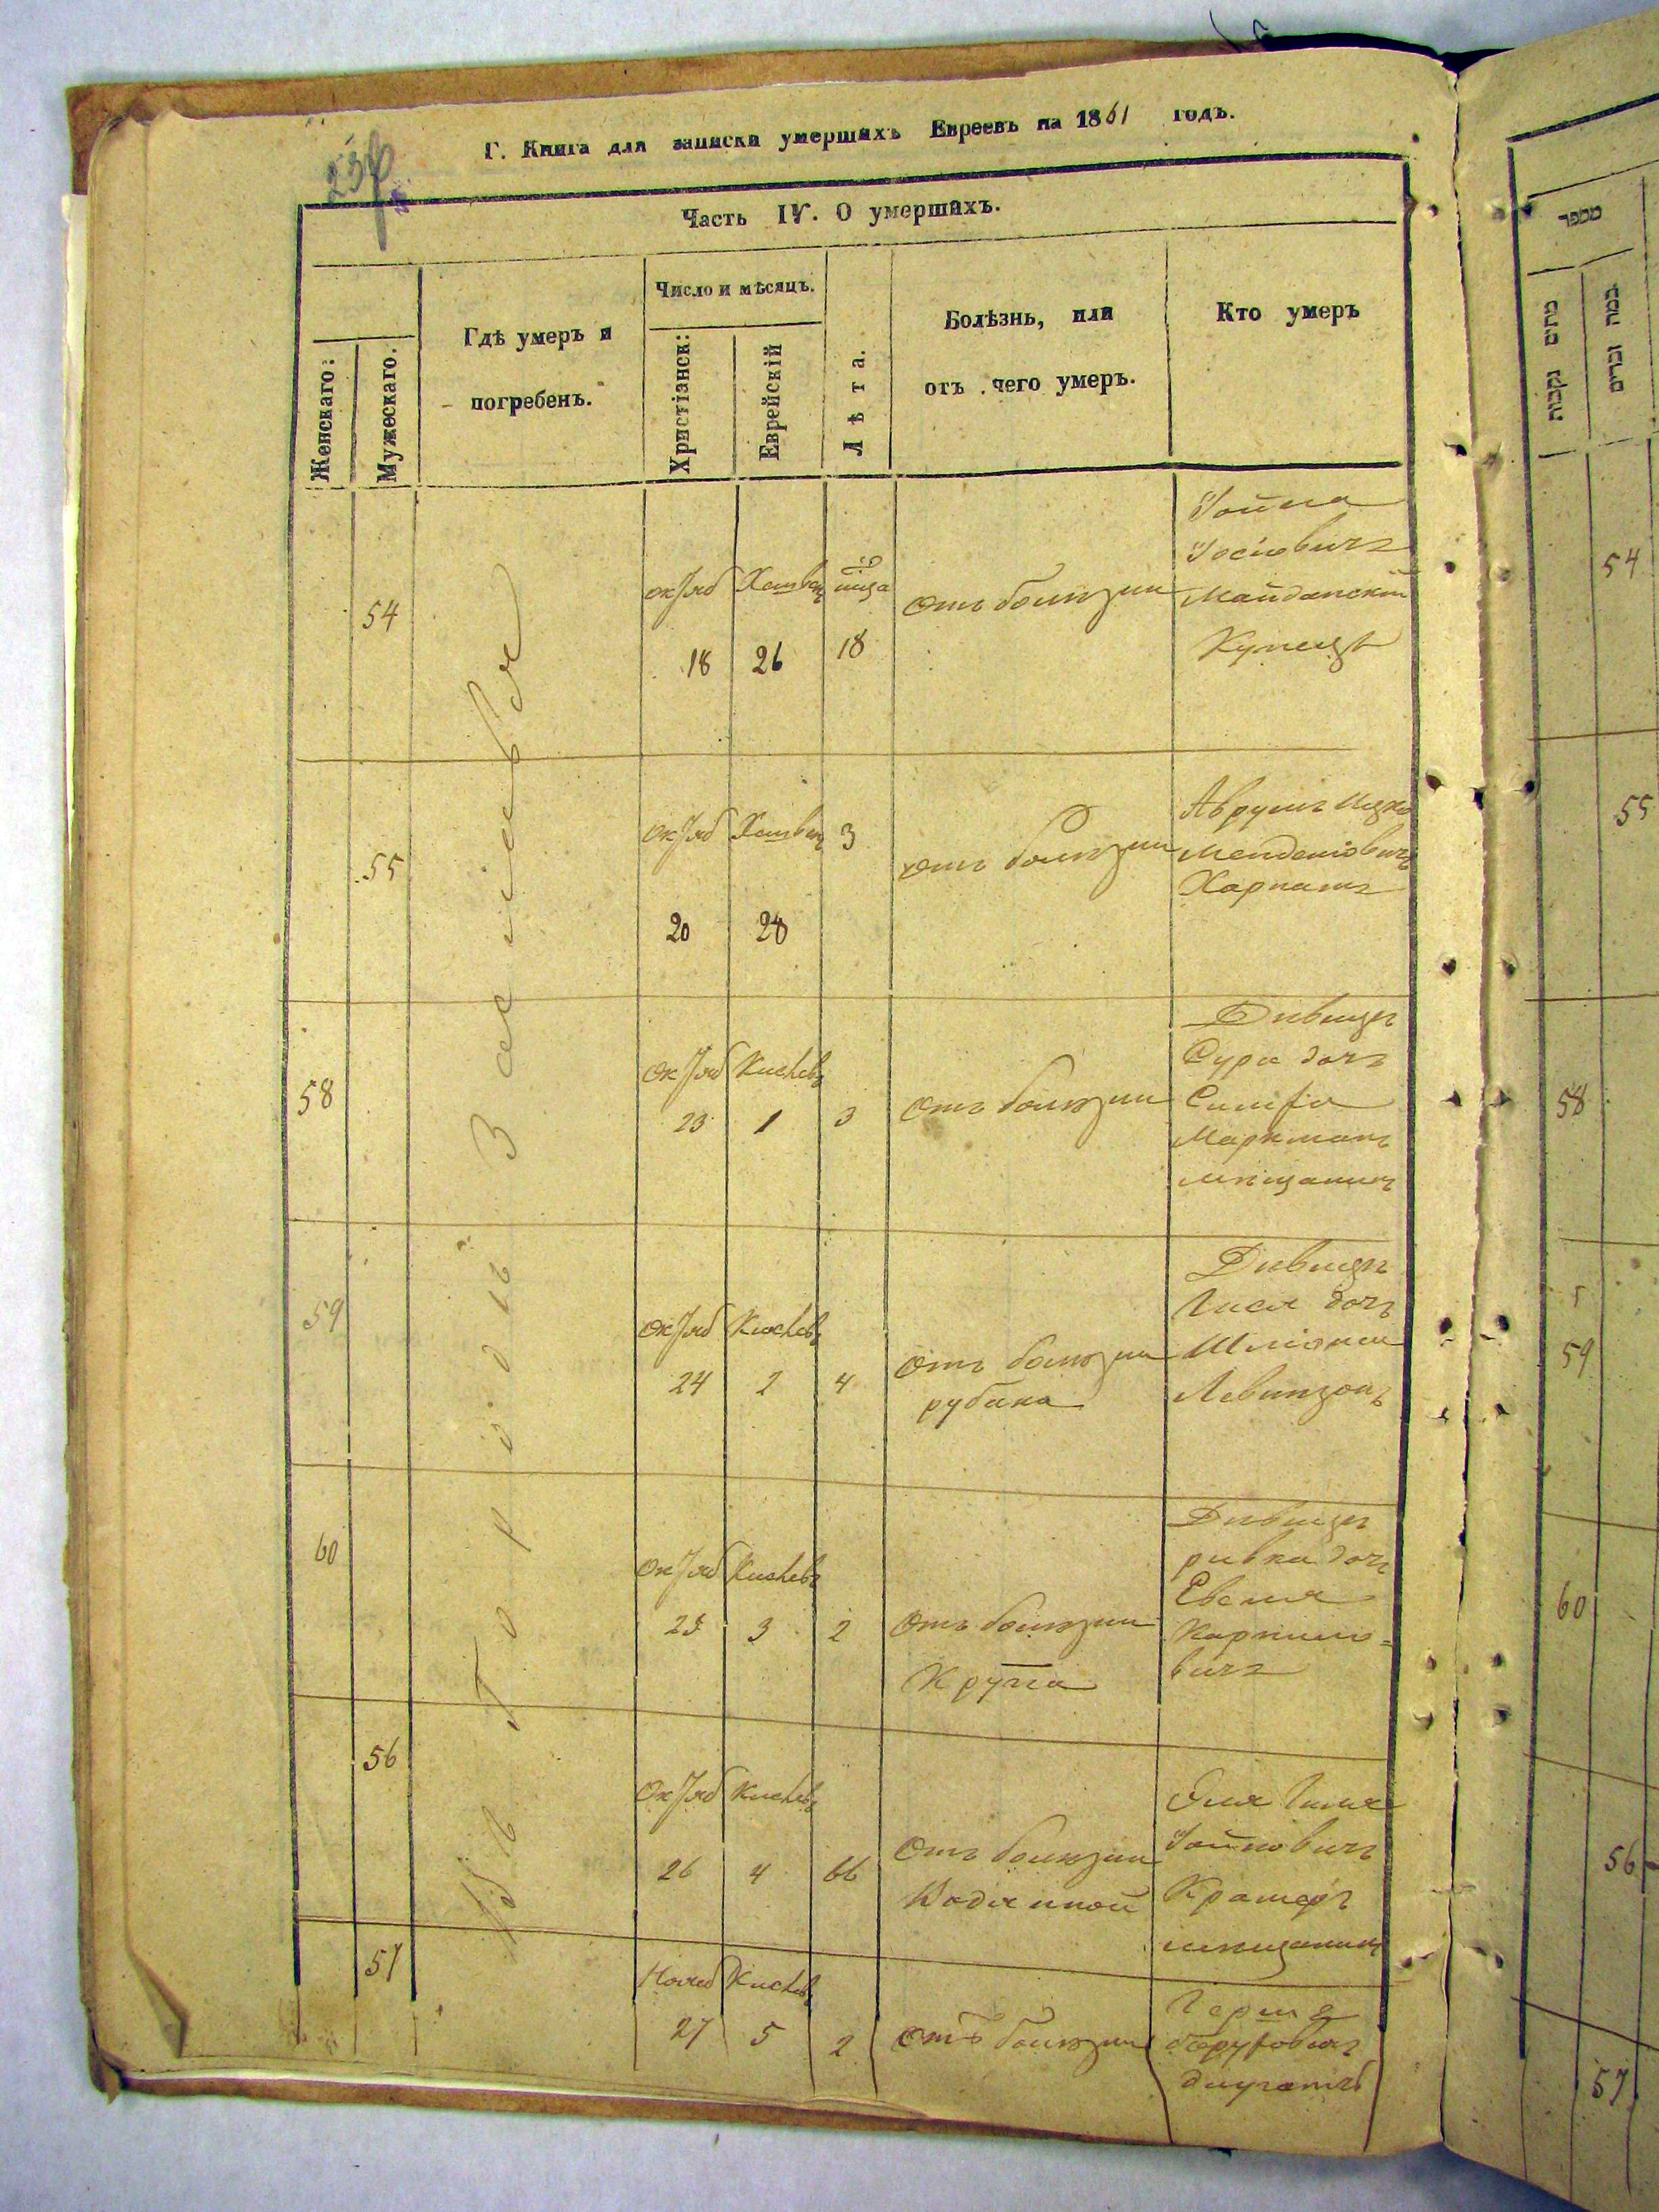 Г. Книга для записки умершихъ Евреевъ на 1861 годъ.
Часть IV. О умершихъ.
Женскаго:
Мужескаго.
Гдѣ умеръ и
погребенъ.
Число и мѣсяцъ.
Христіанск:
Еврейскій
Лѣта.
Болѣзнь, или
отъ чего умеръ.
Кто умеръ
Въ Городѣ Заславѣ
54
октяб
18
Хешвен
26
18
отъ болѣзни
Іойна
Іосіовичъ
Майданскій
Купецъ
55
октяб
20
Хешвен
28
3
отъ болѣзни
Аврумъ Ицко
Менделіовичъ
Харпакъ
58
октяб
23
Кислевъ
1
3
отъ болѣзни
Дѣвица
Сура дочъ
Маркманъ
мѣщанинъ
59
октяб
24
Кислевъ
2
4
отъ болѣзни
Дѣвица
дочъ
Шліомы
Левинзонъ
60
октяб
25
Кислевъ
3
2
отъ болѣзни
Крупа
Дѣвица
ривка дочъ
Евеля
Карпило-
вичъ
56
октяб
26
Кислевъ
4
66
отъ болѣзни
Водяной
Іойновичъ
Крамеръ
мѣщанинъ
57
Нояб
27
Кислевъ
5
2
отъ болѣзни
Герш
מספר
נקבות
זכרים
54
55
58
59
60
56
57